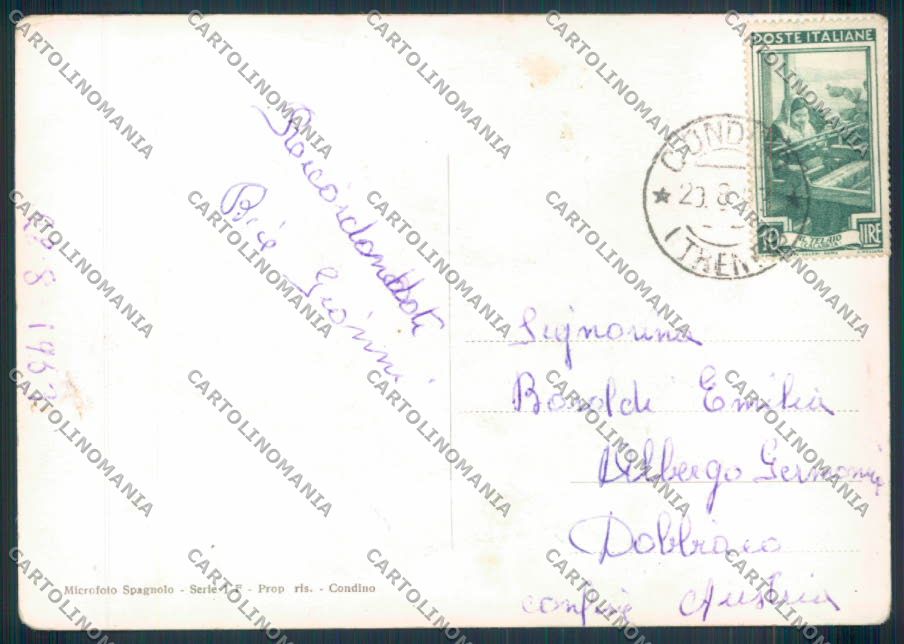 POSTE ITALIANE
AL TELAIO
LIRE
(TREN
Ricordandoti
Bice Gianni
Signorina
Emilia
Albergo Germania
Dobbiaco
confine Austria
Microfoto Spagnolo - Serie - Prop ris. - Condino
CARTOLINOMANIA